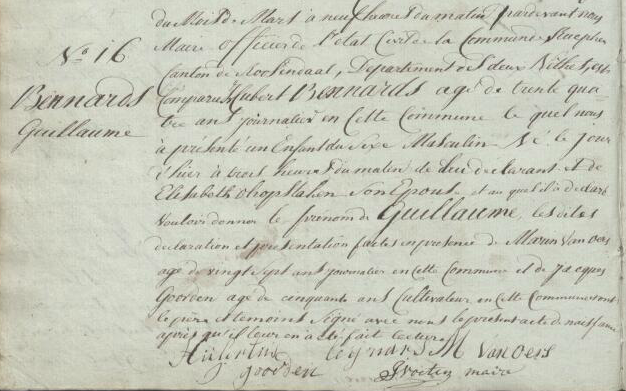 du Mois de Mars à neuf heures du matin pardevant nous
Maire Officier de l'état Civil de la Commune
Canton de Roosendaal, Département des deux Nèthes, est
No 16
Bernards
Guillaume
Comparu Hubert Bernards agé de trente qua
tre ans journalier en cette Commune le quel nous
à présenté un Enfant du Sexe Masculin Né le jour
d'hier à trois heures du matin de lui déclarant et de
Elisabeth son Epouse et au quel il a déclaré
vouloir donner le prénom de Guillaume, les dites
déclaration et présentation faites en présence de Marin Van Oers
agé de vingt sept ans journalier en cette Commune et de Jacques
Goorden agé de cinquante ans Cultivateur en cette Commune ont
le père et temoins signé avec nous le présent acte de naissance
après qu'il leur en à été fait lecture
Huijbertus M Van Oers
goorden maire